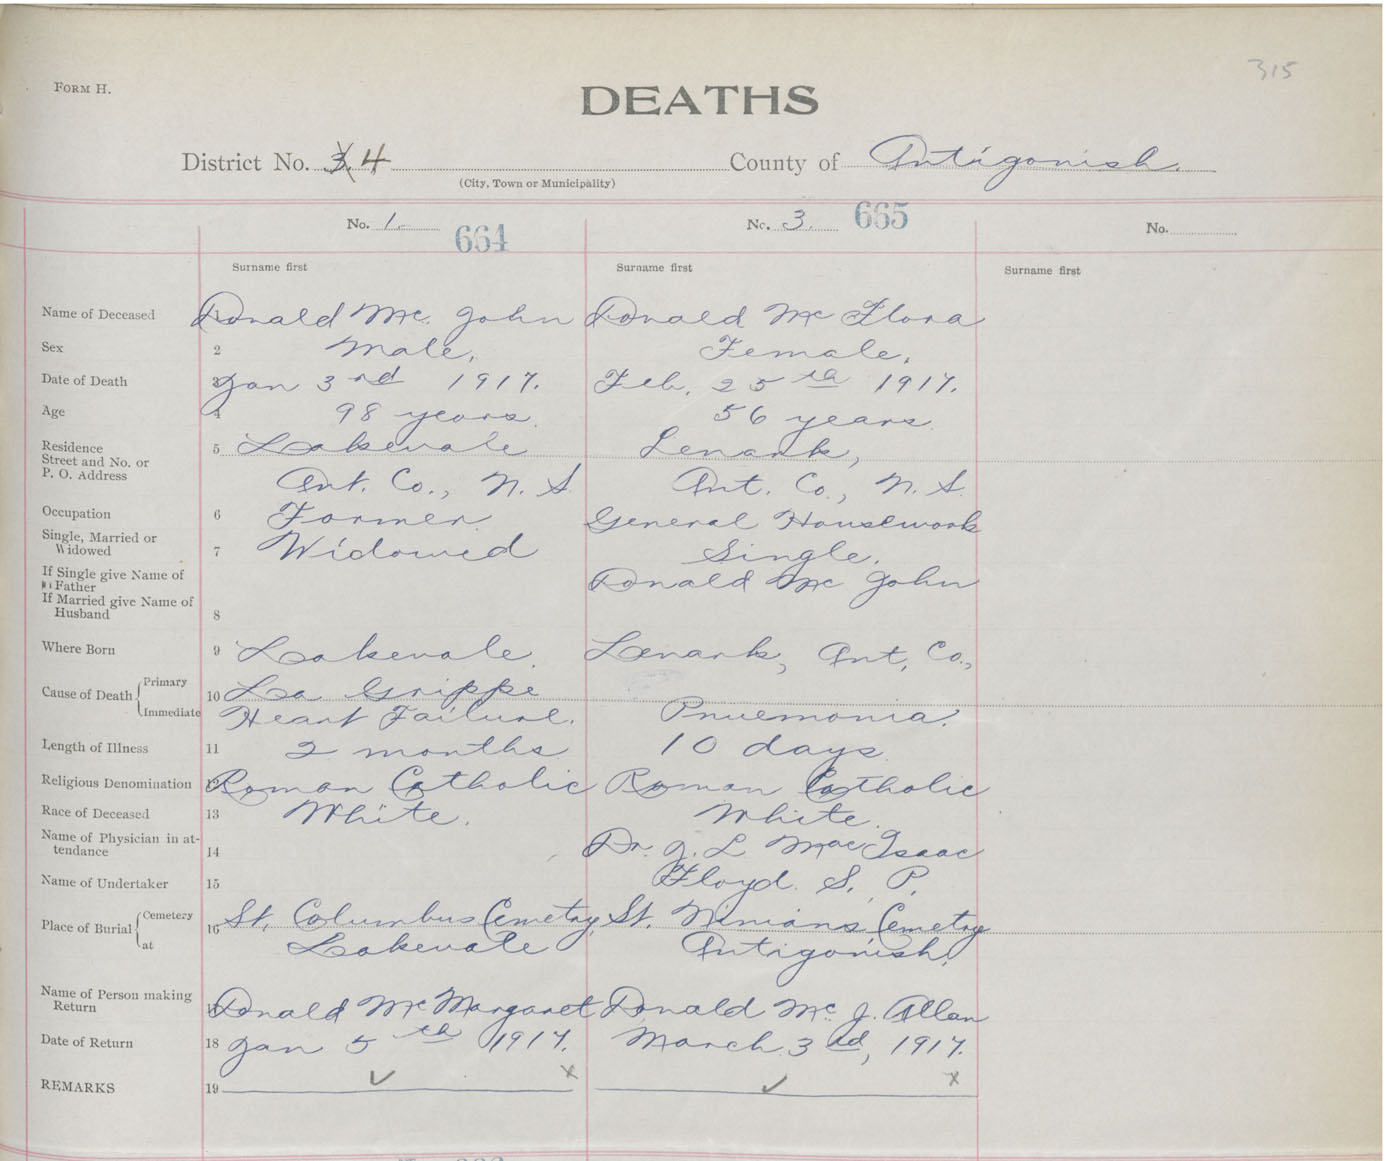 315
FORM H.
DEATHS
District No. 3 4 County of Antigonish.
(City, Town or Municipality)
No. 1. 664 No. 3. 665 No.
Surname first Surname first Surname first
Name of Deceased 1 Donald Mc. John Donald Mc Flora
Sex 2 Male, Female,
Date of Death 3 Jan 3rd 1917. Feb. 25th 1917.
Age 4 98 years. 56 years.
Residence 5 Lakevale Lenark,
Street and No. or
P. O. Address Ant. Co., N. S. Ant. Co., N. S.
Occupation 6 Farmer General Housework
Single, Married or
Widowed 7 Widowed Single.
If Single give Name of Donald Mc John
Father
If Married give Name of
Husband 8
Where Born 9 Lakevale. Lenark, Ant. Co.,
Cause of Death Primary 10 La Grippe
Immediate Heart Failure. Pnuemonia.
Length of Illness 11 2 months 10 days
Religious Denomination 12 Roman Catholic Roman Catholic
Race of Deceased 13 White. White.
Name of Physician in at-
tendance 14 Dr. J. L MacIsaac
Name of Undertaker 15 Floyd. S. P.
Place of Burial Cemetery 16 St. Columbus Cemetry, St. Ninians Cemetry
at Lakevale Antigonish.
Name of Person making
Return 17 Donald Mc Margaret Donald Mc. J. Allan
Date of Return 18 Jan 5th 1917. March 3rd, 1917.
REMARKS 19